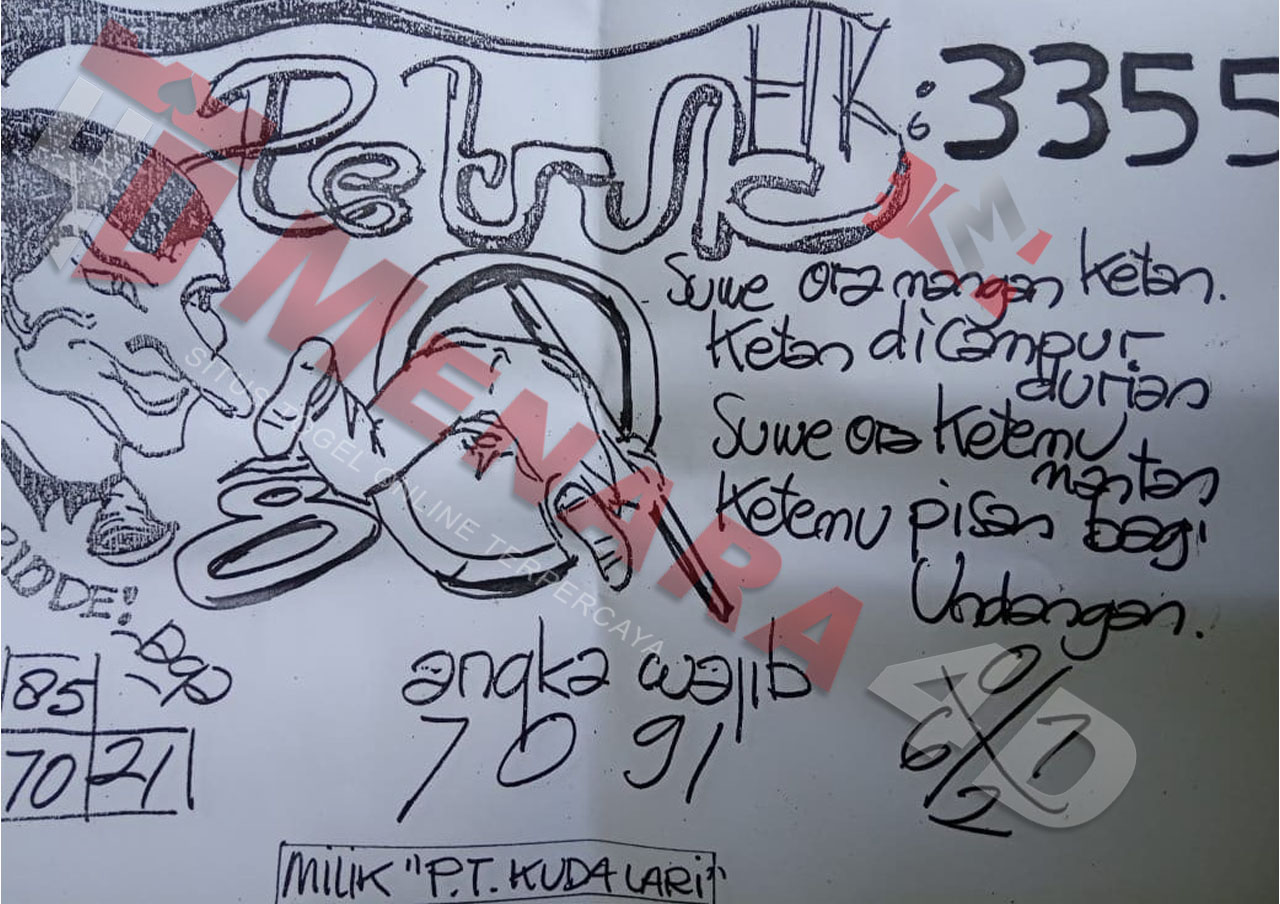 Petruk HK: 3355
6
Suwe ora mangan Ketan.
Ketan dicampur
durian
Suwe ora Ketemu
mantan
Ketemu pisan bagi
Undangan.
HDMENARA
SITUS TOGEL ONLINE TERPERCAYA
4D
angka wajib
7 0 91
0
6 7
2
85
70 21
MILIK "P.T. KUDA LARI"